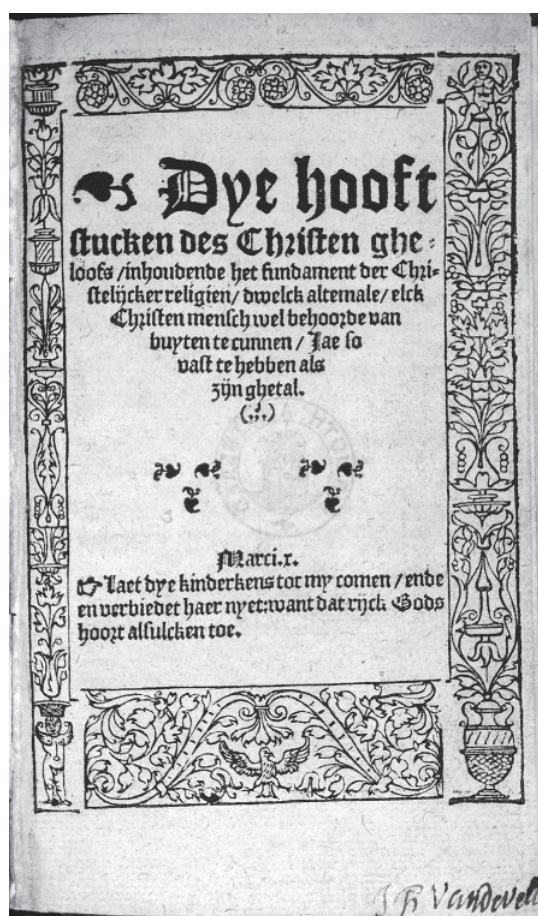 Dye hooft
stucken des Christen ghe⸗
loofs /inhoudende het fundament der Chri⸗
stelijcker religien/ dwelck altemale/ elck
Christen mensch wel behoorde van
buyten te cunnen / Jae so
vast te hebben als
zijn ghetal.
Marci.x.
Laet dye kinderkens tot my comen / ende
en verbiedet haer nyet:want dat rijck Gods
hoort alsulcken toe.
Vandevel